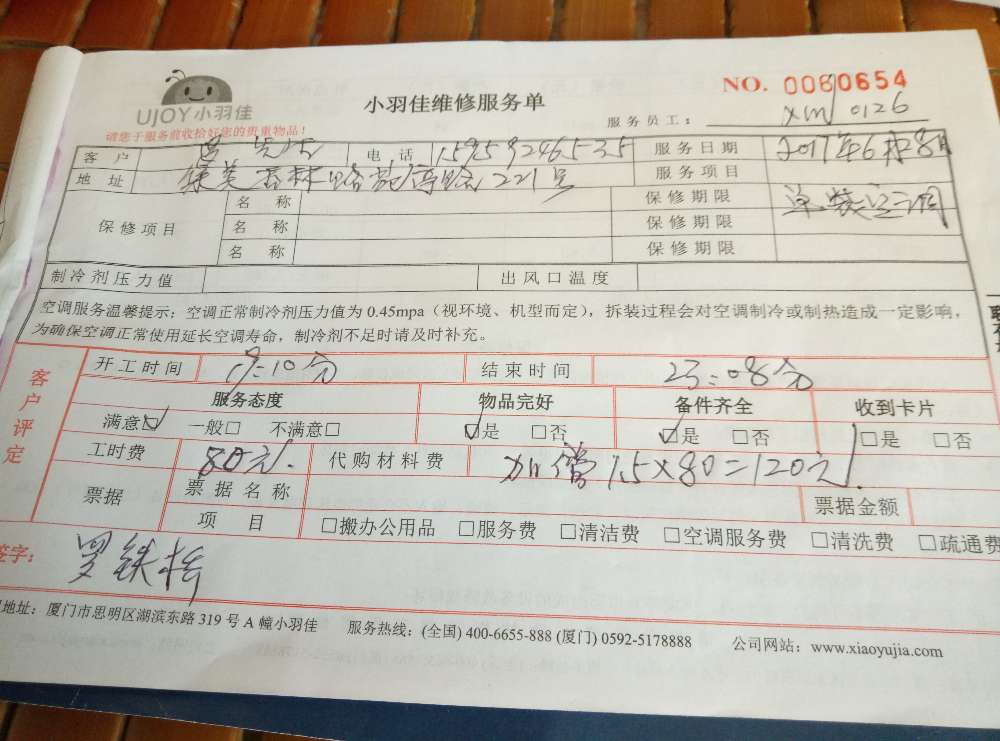 UJOY小羽佳
请您于服务前收拾好您的贵重物品!
小羽佳维修服务单
NO. 0080654
服务员工: xm 0126
客户 先生 电话 15959246535 服务日期 2017年6月8日
地址 集美杏林路 路221号 服务项目
保修项目 名称 保修期限 单装空调
名称 保修期限
名称 保修期限
制冷剂压力值 出风口温度
空调服务温馨提示: 空调正常制冷剂压力值为 0.45mpa (视环境、机型而定), 拆装过程会对空调制冷或制热造成一定影响,
为确保空调正常使用延长空调寿命, 制冷剂不足时请及时补充。
客户评定
开工时间 :10分 结束时间 23:08分
服务态度 物品完好 备件齐全 收到卡片
满意☑ 一般□ 不满意□ ☑是 □否 ☑是 □否 □是 □否
工时费 80元. 代购材料费 加管 1.5×80=120元
票据 票据名称 票据金额
项目 □搬办公用品 □服务费 □清洁费 □空调服务费 □清洗费 □疏通费
签字: 罗铁桥
地址: 厦门市思明区湖滨东路 319 号 A 幢小羽佳 服务热线: (全国) 400-6655-888 (厦门) 0592-5178888 公司网站: www.xiaoyujia.com